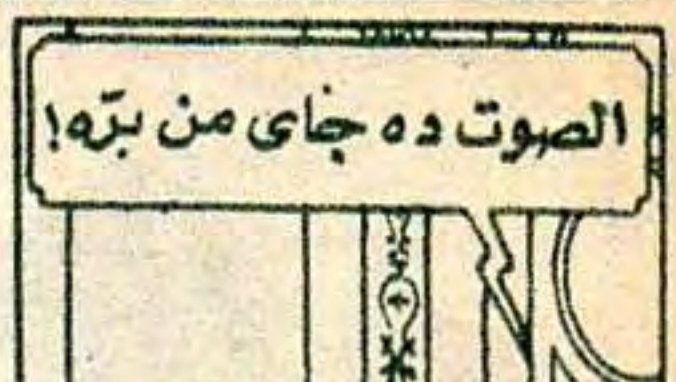 الصوت ده جاى من برّه!